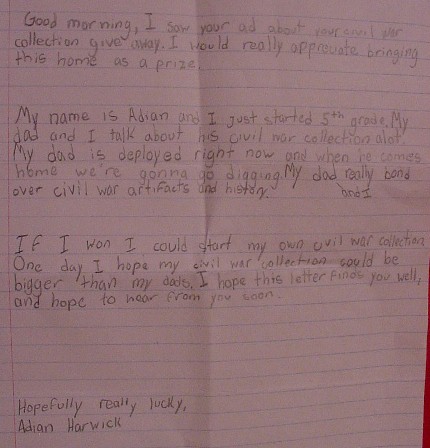 Good morning, I saw your ad about your civil war
collection give away. I would really appreciate bringing
this home as a prize.
My name is Adian and I just started 5th grade. My
dad and I talk about his civil war collection alot.
My dad is deployed right now and when he comes
home we're gonna go digging. My dad really bond
and I
over civil war artifacts and history.
If I won I could start my own civil war collection
One day I hope my civil war collection could be
bigger than my dads. I hope this letter finds you well,
and hope to hear from you soon.
Hopefully really lucky,
Adian Harwick